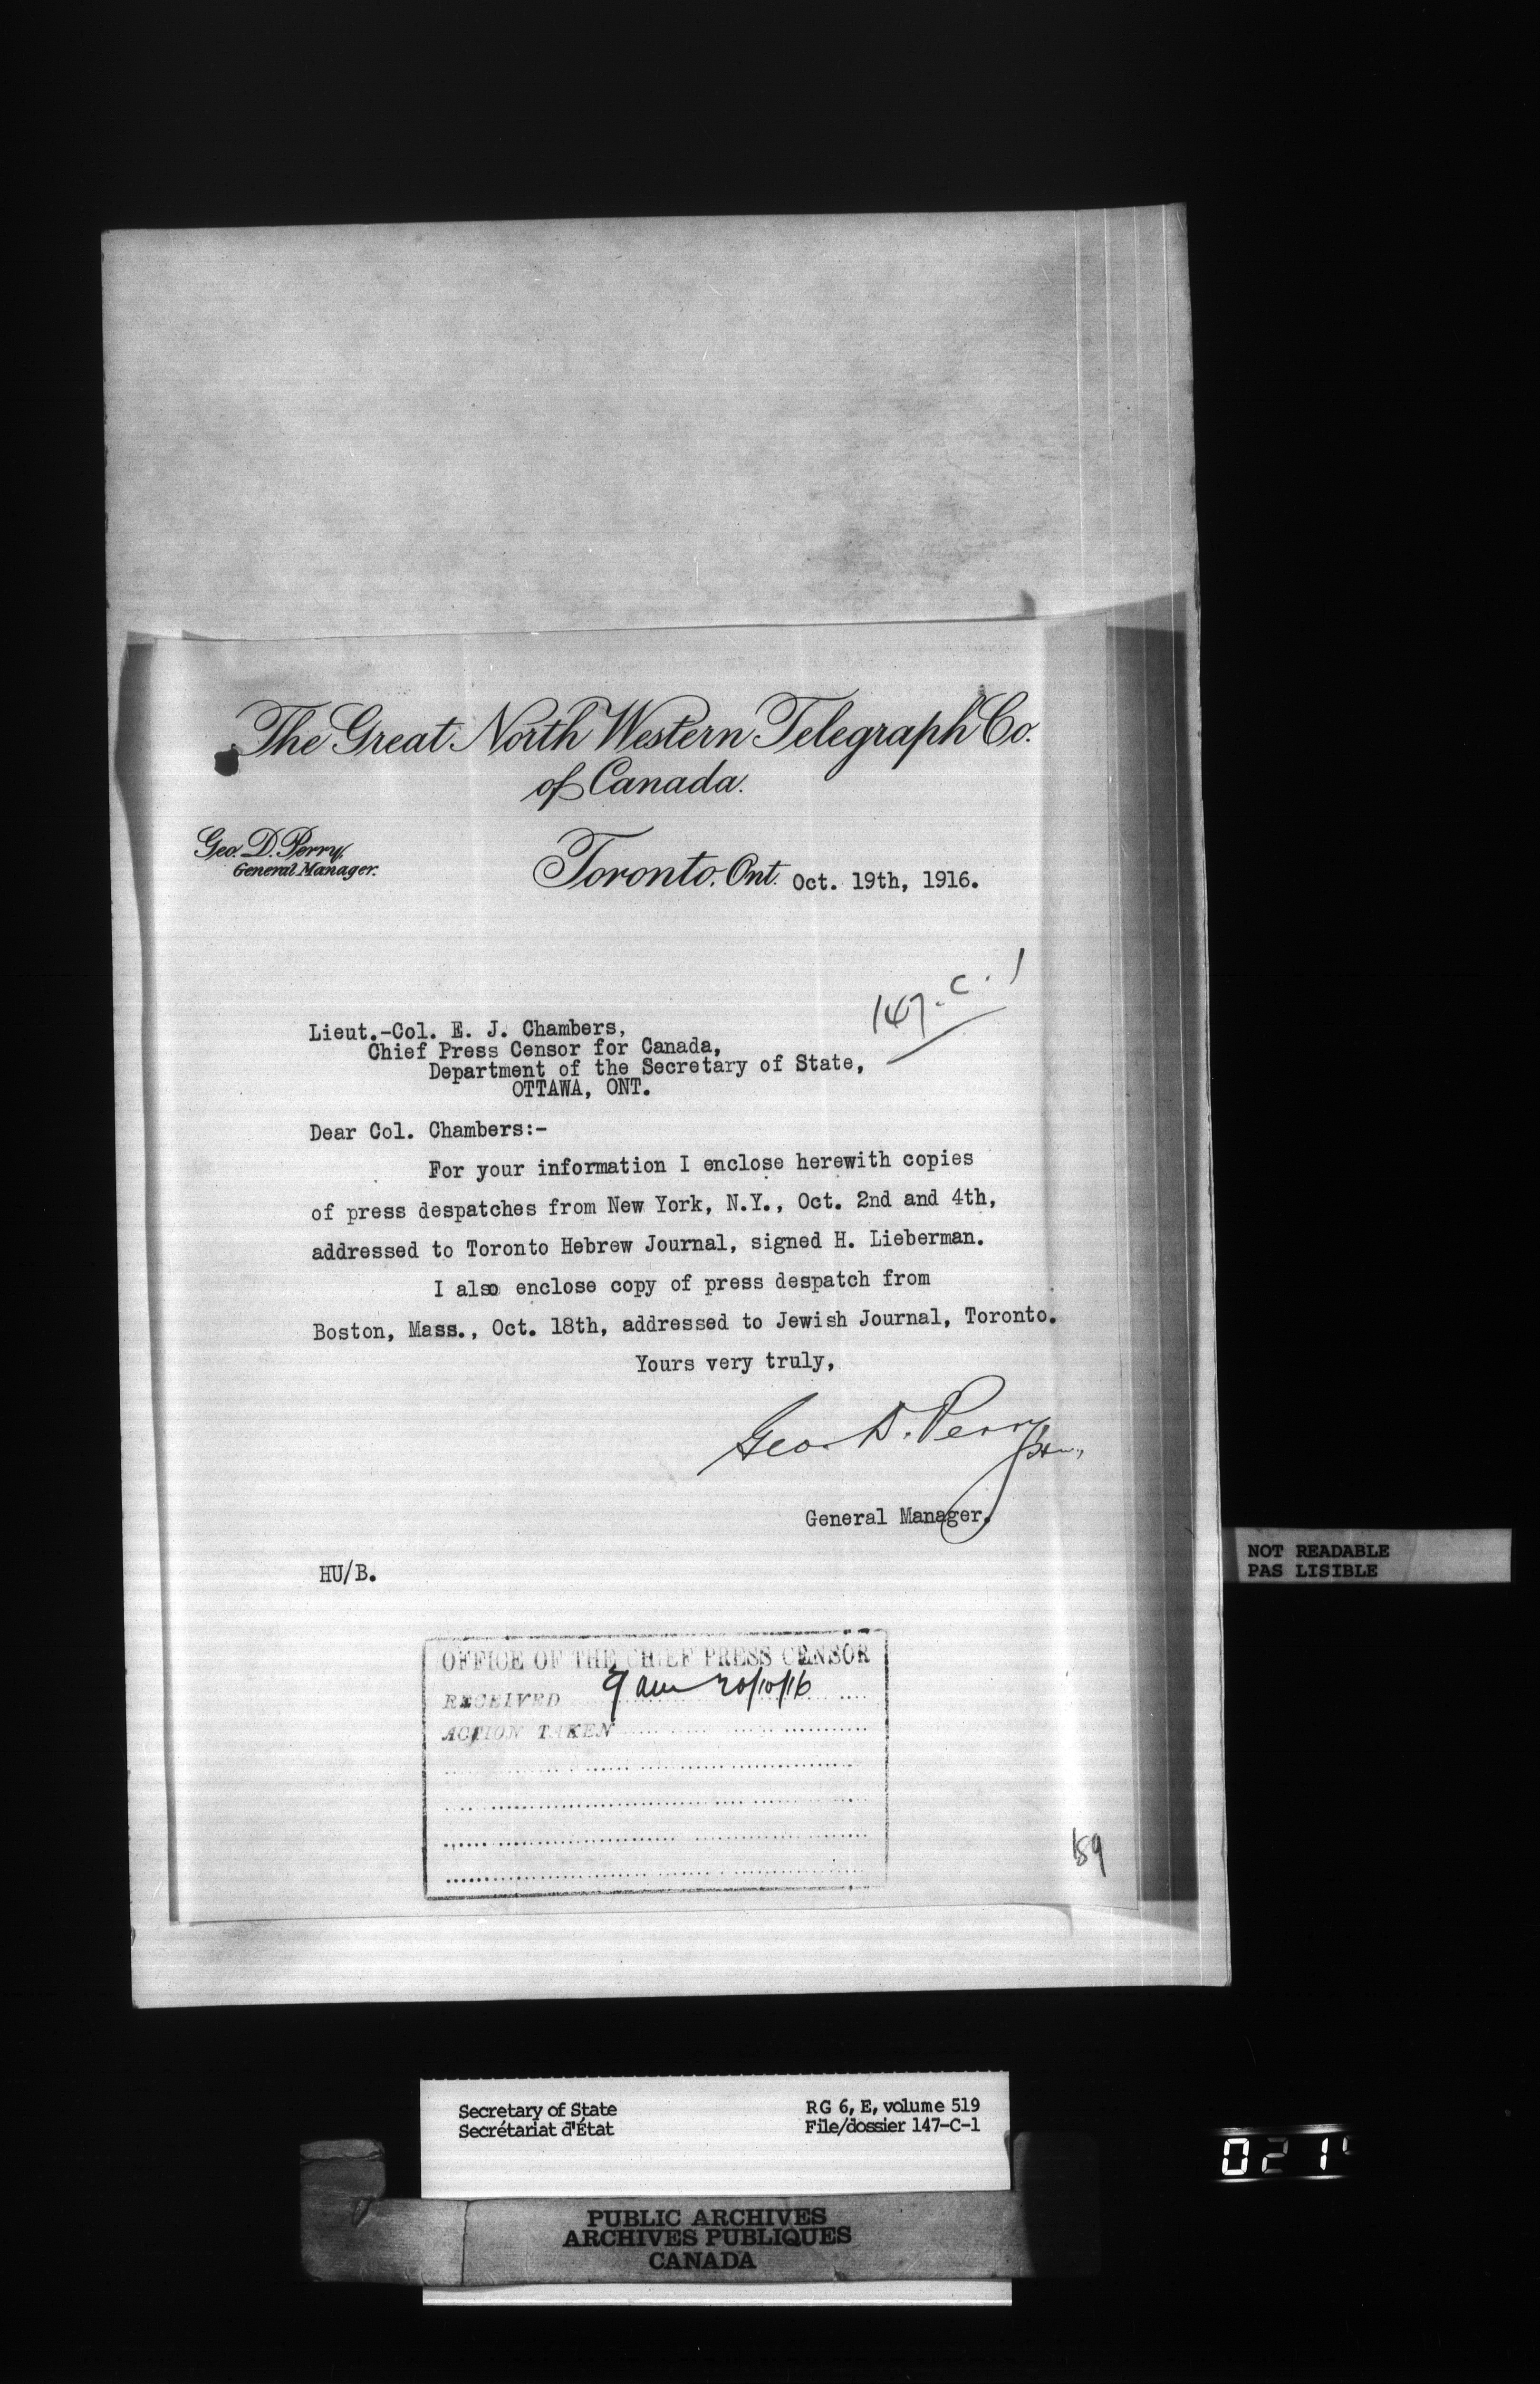 The Great North Western Telegraph Co.
of Canada.
Geo. D. Perry,
General Manager.
Toronto, Ont. Oct. 19th, 1916.
147-C-1
Lieut.-Col. E. J. Chambers,
Chief Press Censor for Canada,
Department of the Secretary of State,
OTTAWA, ONT.
Dear Col. Chambers:-
For your information I enclose herewith copies
of press despatches from New York, N.Y., Oct. 2nd and 4th,
addressed to Toronto Hebrew Journal, signed H. Lieberman.
I also enclose copy of press despatch from
Boston, Mass., Oct. 18th, addressed to Jewish Journal, Toronto.
Yours very truly,
Geo. D. Perry
General Manager.
HU/B.
NOT READABLE
PAS LISIBLE
OFFICE OF THE CHIEF PRESS CENSOR
RECEIVED 9 am 20/10/16
ACTION TAKEN
159
Secretary of State
Secrétariat d'État
RG 6, E, volume 519
File/dossier 147-C-1
021
PUBLIC ARCHIVES
ARCHIVES PUBLIQUES
CANADA